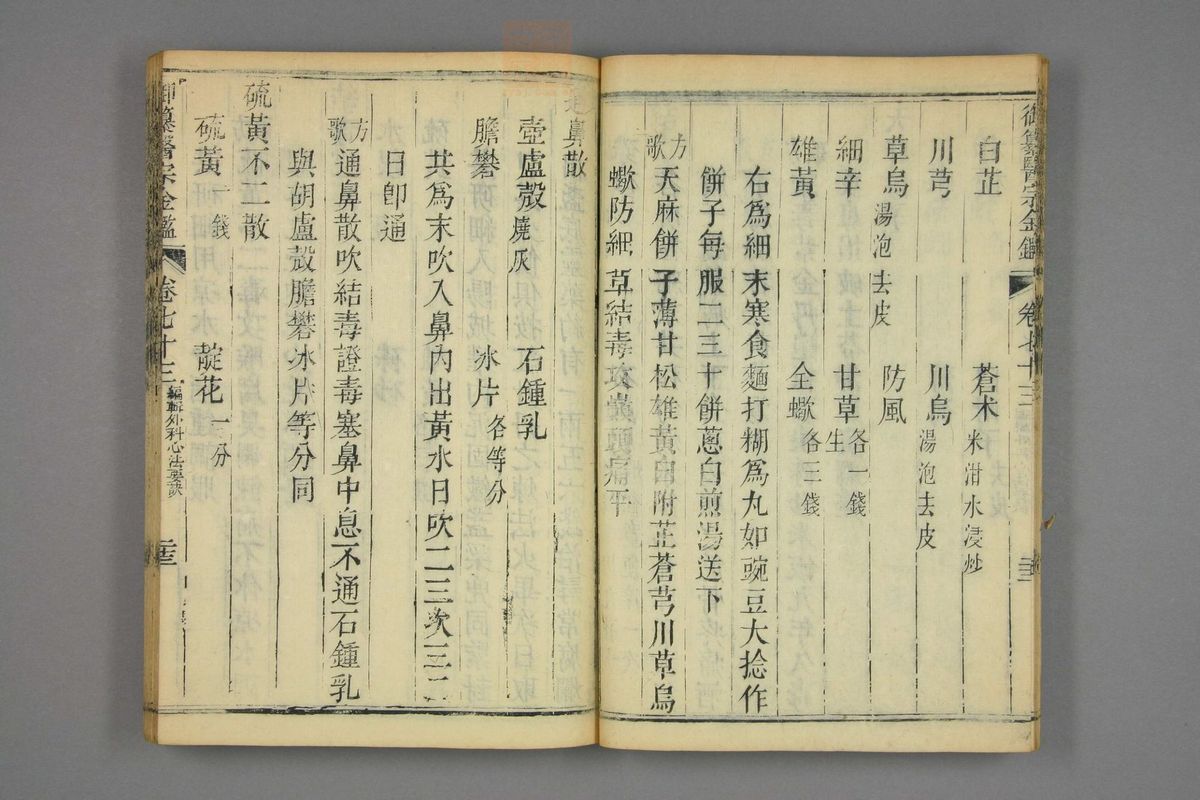 御纂醫宗金鑑 卷七十三
白芷 蒼朮米泔水浸炒
川芎 川烏湯泡去皮
草烏湯泡去皮 防風
細辛 甘草生各一錢
雄黃 全蠍各三錢
右爲細末寒食麵打糊爲丸如豌豆大捻作
餅子每服二三十餅蔥白煎湯送下
方歌 天麻餅子薄甘松雄黃白附芷蒼芎川草烏
蠍防細草結毒攻巔頭痛平
通鼻散
壺盧殼燒灰 石鍾乳
膽礬 冰片各等分
共爲末吹入鼻內出黃水日吹二三次三二
日卽通
方歌 通鼻散吹結毒證毒塞鼻中息不通石鍾乳
與胡盧殼膽礬冰片等分同
硫黃不二散
硫黃一錢 靛花一分
御纂醫宗金鑑 卷七十三 編輯外科心法要訣